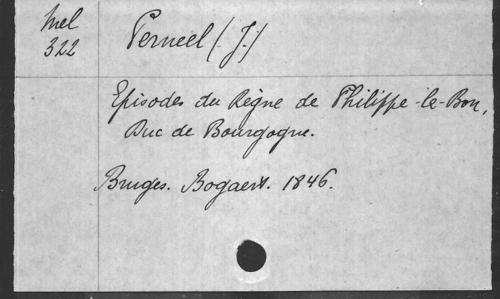 Mel
322
Perneel (J.)
Episodes du Règne de Philippe-le-Bon,
Duc de Bourgogne.
Bruges. Bogaert. 1846.